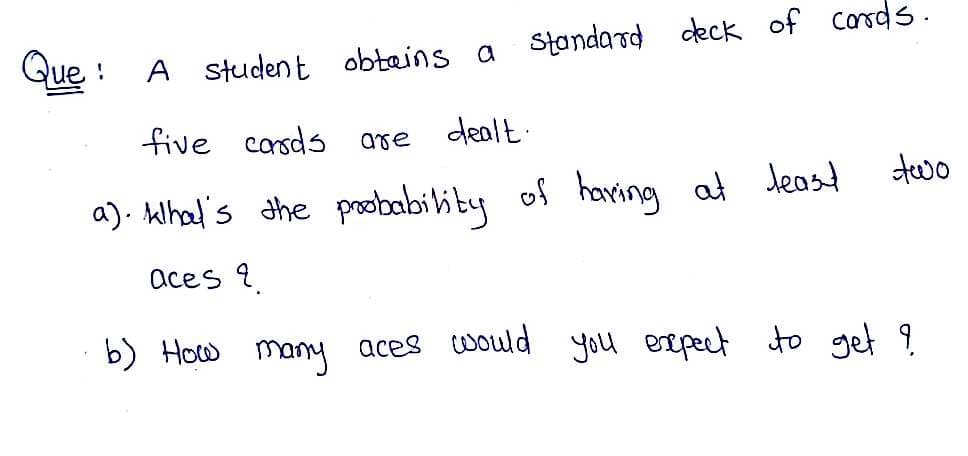 Que : A student obtains a standard deck of cards.
five cards are dealt.
a). What's the probability of having at least two
aces ?
b) How many aces would you expect to get ?